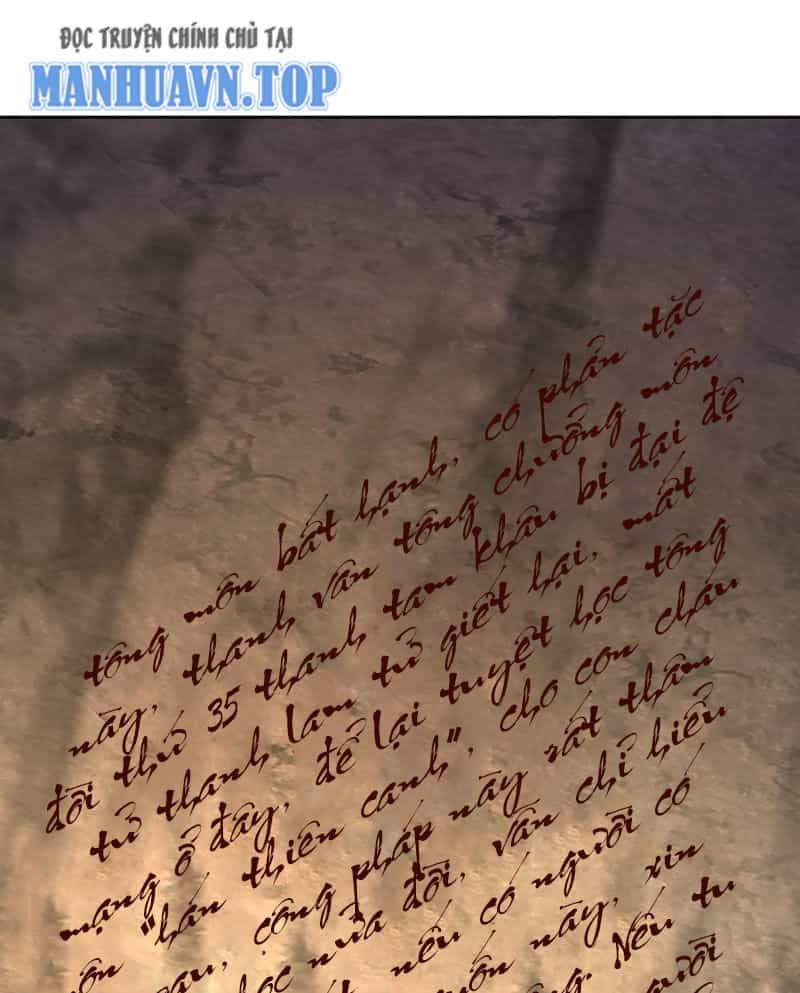 ĐỌC TRUYỆN CHÍNH CHỦ TẠI
MANHUAVN.TOP
tông môn bất hạnh, có phản tặc
này, thanh vân tông chưởng môn
đời thứ 35 thanh tam khâu bị đại đệ
tử thanh lam tử giết hại, mất
mạng ở đây, để lại tuyệt học tông
môn "hám thiên canh", cho con cháu
sau, công pháp này rất thâm
học nửa đời, vẫn chỉ hiểu
nếu có người có
môn này, xin
Nếu tu
người